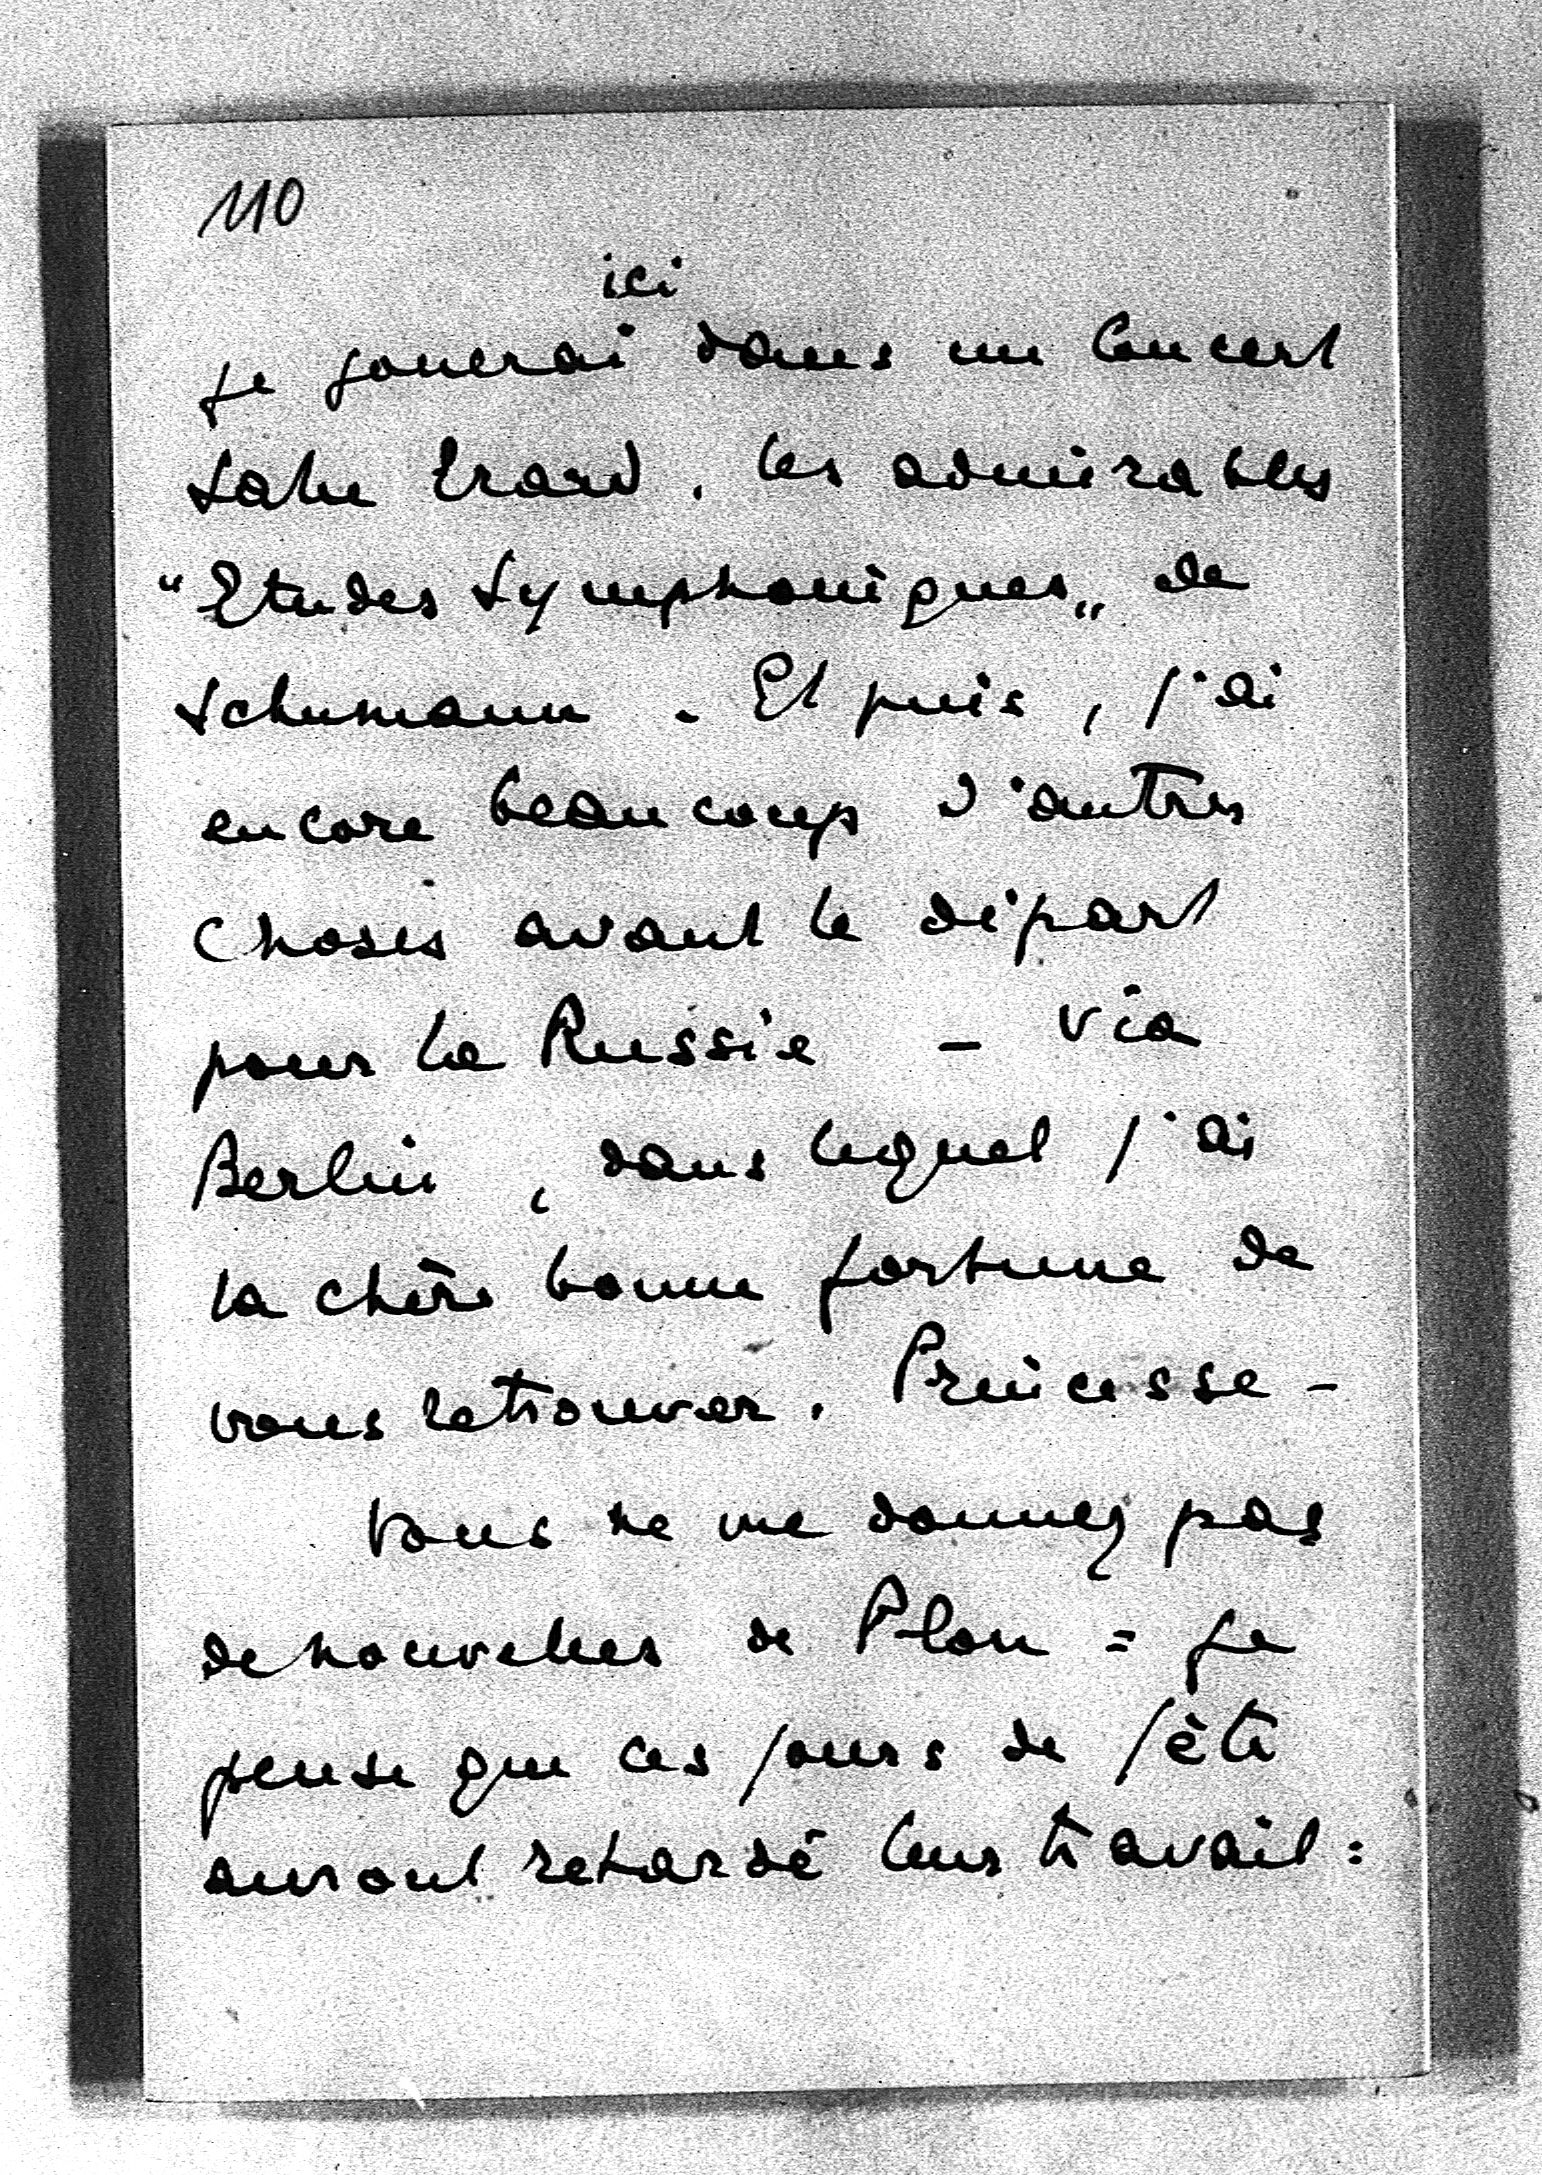 110
ici
je jouerai dans un Concert
Salle Erard. les admirables
"Etudes Symphoniques" de
Schumann. Et puis, j'ai
encore beaucoup d'autres
choses avant le départ
pour la Russie – via
Berlin, dans lequel j'ai
la chère bonne fortune de
vous retrouver. Princesse –
Vous ne me donnez pas
de nouvelles de Plon = je
pense que ces jours de fête
auront retardé leur travail :